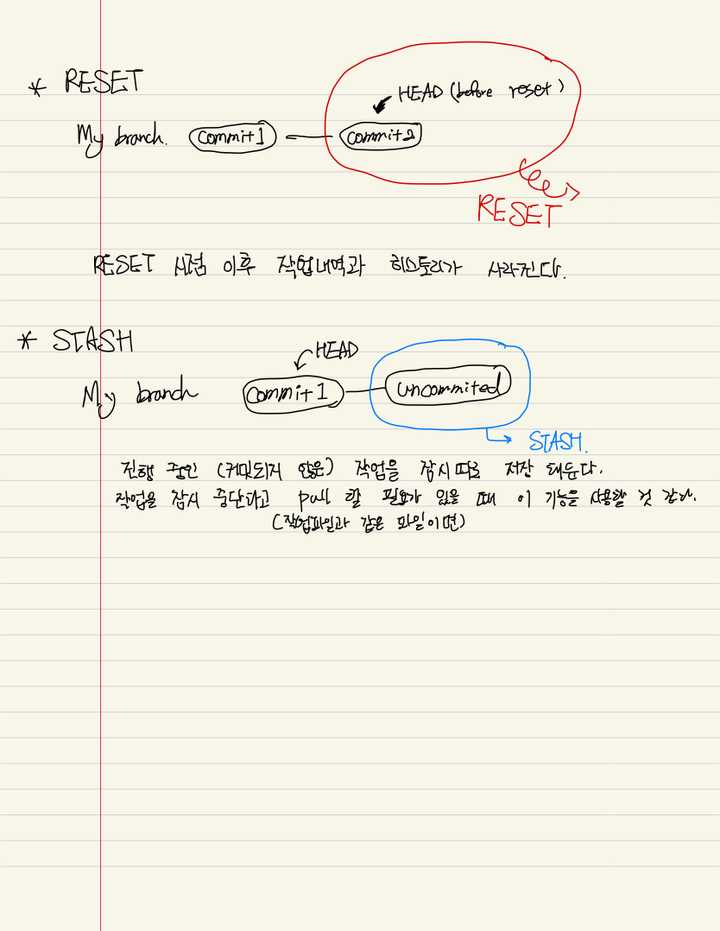 * RESET
HEAD (before reset)
My branch. commit1 commit2
RESET
RESET 시점 이후 작업내역과 히스토리가 사라진다.
* STASH
HEAD
My branch commit1 uncommited
STASH.
진행 중인 (커밋되지 않은) 작업을 잠시 따로 저장 해둔다.
작업을 잠시 중단하고 pull 할 필요가 있을 때 이 기능을 사용할 것 같다.
(작업파일과 같은 파일이면)